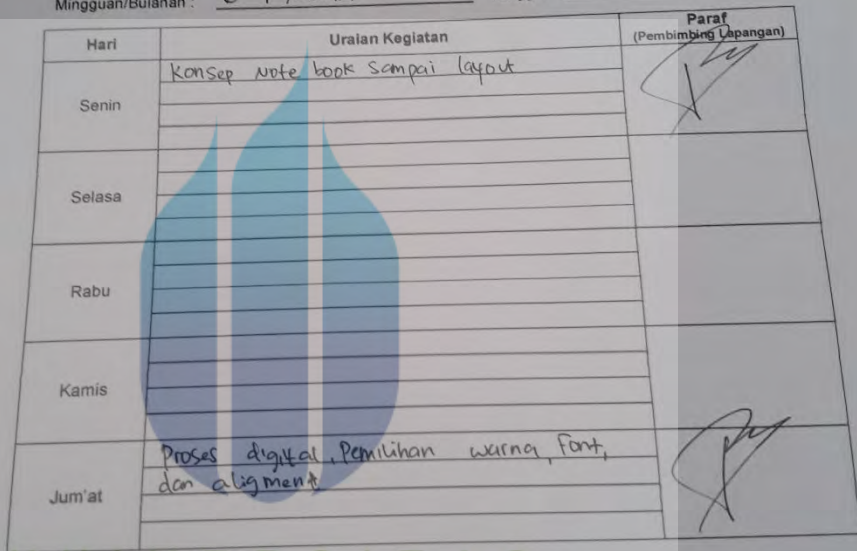 Mingguan/Bulanan :
Hari Uraian Kegiatan Paraf
(Pembimbing Lapangan)
Senin
Konsep Note book Sampai layout
Selasa
Rabu
Kamis
Jum'at
Proses digital, Pemilihan warna, Font,
dan aligment